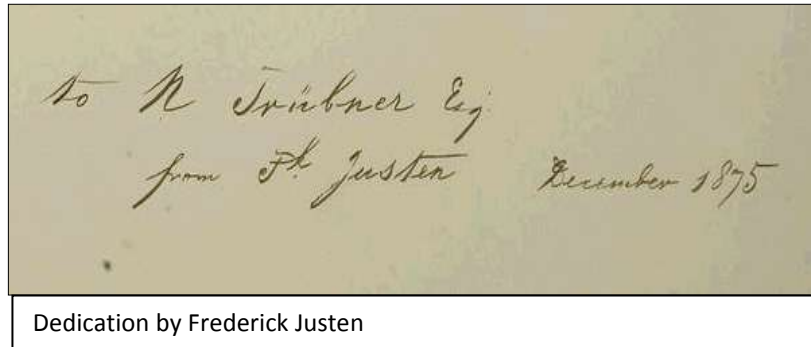 to N Trübner Esq
from Fk Justen December 1875
Dedication by Frederick Justen